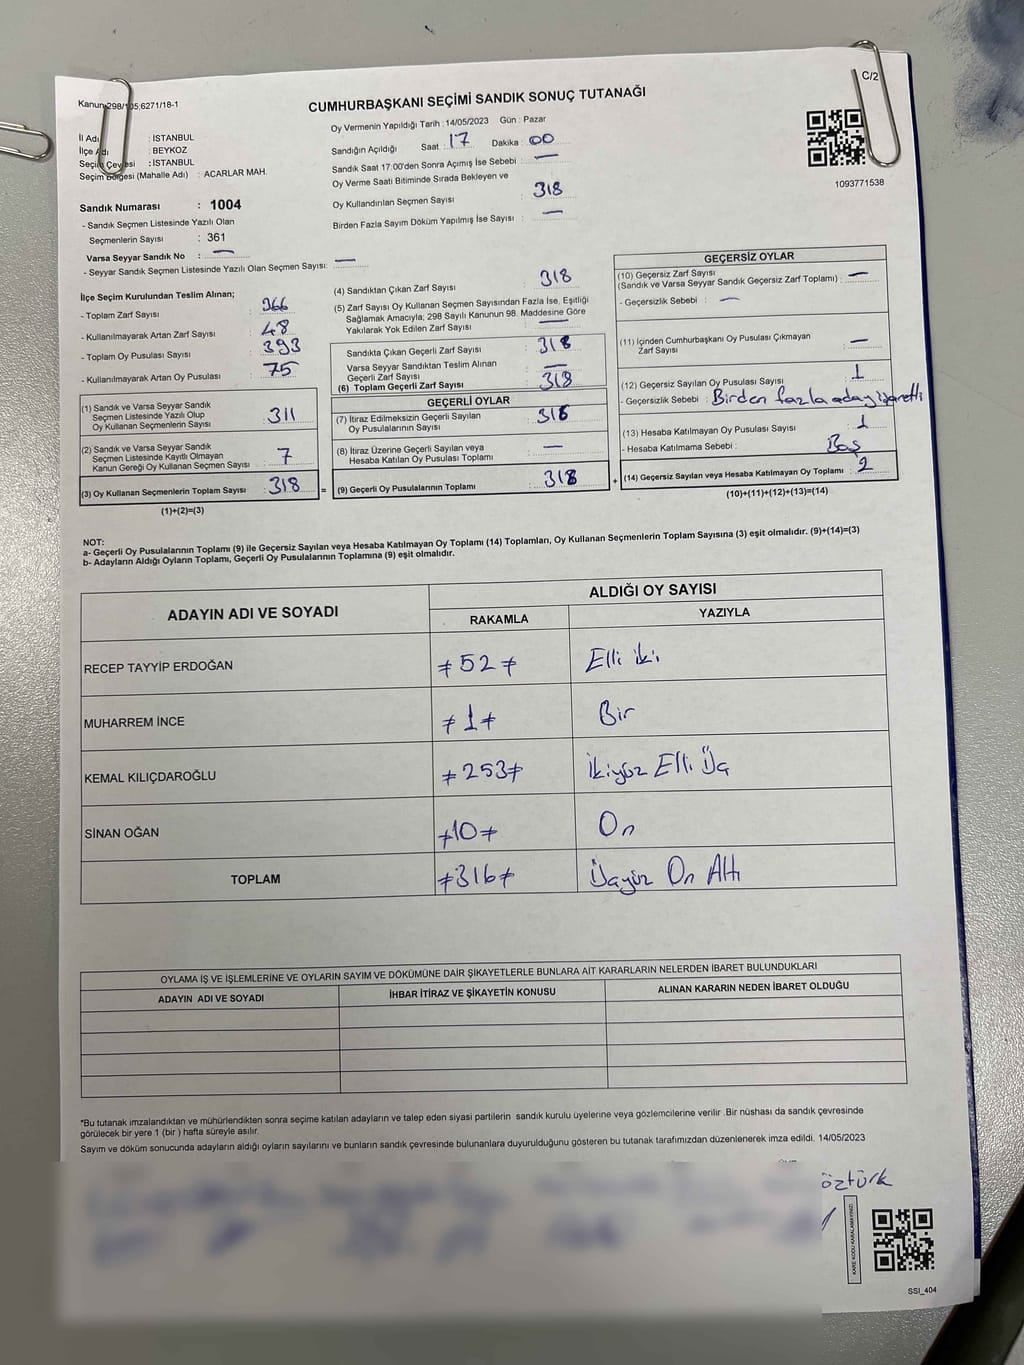 Kanun:298/105;6271/18-1
C/2
CUMHURBAŞKANI SEÇİMİ SANDIK SONUÇ TUTANAĞI
İl Adı : İSTANBUL
İlçe Adı : BEYKOZ
Seçim Çevresi : İSTANBUL
Seçim Bölgesi (Mahalle Adı) : ACARLAR MAH.
Sandık Numarası : 1004
- Sandık Seçmen Listesinde Yazılı Olan
Seçmenlerin Sayısı : 361
Varsa Seyyar Sandık No : —
- Seyyar Sandık Seçmen Listesinde Yazılı Olan Seçmen Sayısı: —
Oy Vermenin Yapıldığı Tarih : 14/05/2023 Gün : Pazar
Sandığın Açıldığı Saat : 17 Dakika : 00
Sandık Saat 17:00'den Sonra Açımış İse Sebebi : —
Oy Verme Saati Bitiminde Sırada Bekleyen ve
Oy Kullandırılan Seçmen Sayısı : 318
Birden Fazla Sayım Döküm Yapılmış İse Sayısı : —
1093771538
İlçe Seçim Kurulundan Teslim Alınan;
- Toplam Zarf Sayısı : 366
- Kullanılmayarak Artan Zarf Sayısı : 48
- Toplam Oy Pusulası Sayısı : 393
- Kullanılmayarak Artan Oy Pusulası : 75
(1) Sandık ve Varsa Seyyar Sandık
Seçmen Listesinde Yazılı Olup
Oy Kullanan Seçmenlerin Sayısı : 311
(2) Sandık ve Varsa Seyyar Sandık
Seçmen Listesinde Kayıtlı Olmayan
Kanun Gereği Oy Kullanan Seçmen Sayısı : 7
(3) Oy Kullanan Seçmenlerin Toplam Sayısı : 318 =
(1)+(2)=(3)
(4) Sandıktan Çıkan Zarf Sayısı : 318
(5) Zarf Sayısı Oy Kullanan Seçmen Sayısından Fazla İse, Eşitliği
Sağlamak Amacıyla; 298 Sayılı Kanunun 98. Maddesine Göre
Yakılarak Yok Edilen Zarf Sayısı : —
Sandıkta Çıkan Geçerli Zarf Sayısı : 318
Varsa Seyyar Sandıktan Teslim Alınan
Geçerli Zarf Sayısı : —
(6) Toplam Geçerli Zarf Sayısı : 318
GEÇERLİ OYLAR
(7) İtiraz Edilmeksizin Geçerli Sayılan
Oy Pusulalarının Sayısı : 316
(8) İtiraz Üzerine Geçerli Sayılan veya
Hesaba Katılan Oy Pusulası Toplamı : —
(9) Geçerli Oy Pusulalarının Toplamı : 318 +
GEÇERSİZ OYLAR
(10) Geçersiz Zarf Sayısı
(Sandık ve Varsa Seyyar Sandık Geçersiz Zarf Toplamı) : —
- Geçersizlik Sebebi : —
(11) İçinden Cumhurbaşkanı Oy Pusulası Çıkmayan
Zarf Sayısı : —
(12) Geçersiz Sayılan Oy Pusulası Sayısı : 1
- Geçersizlik Sebebi : Birden fazla aday işaretli
(13) Hesaba Katılmayan Oy Pusulası Sayısı : 1
- Hesaba Katılmama Sebebi : Boş
(14) Geçersiz Sayılan veya Hesaba Katılmayan Oy Toplamı : 2
(10)+(11)+(12)+(13)=(14)
NOT:
a- Geçerli Oy Pusulalarının Toplamı (9) ile Geçersiz Sayılan veya Hesaba Katılmayan Oy Toplamı (14) Toplamları, Oy Kullanan Seçmenlerin Toplam Sayısına (3) eşit olmalıdır. (9)+(14)=(3)
b- Adayların Aldığı Oyların Toplamı, Geçerli Oy Pusulalarının Toplamına (9) eşit olmalıdır.
ADAYIN ADI VE SOYADI
ALDIĞI OY SAYISI
RAKAMLA YAZIYLA
RECEP TAYYİP ERDOĞAN ≠52≠ Elli iki
MUHARREM İNCE ≠1≠ Bir
KEMAL KILIÇDAROĞLU ≠253≠ İkiyüz Elli Üç
SİNAN OĞAN ≠10≠ On
TOPLAM ≠316≠ Üçyüz On Altı
OYLAMA İŞ VE İŞLEMLERİNE VE OYLARIN SAYIM VE DÖKÜMÜNE DAİR ŞİKAYETLERLE BUNLARA AİT KARARLARIN NELERDEN İBARET BULUNDUKLARI
ADAYIN ADI VE SOYADI İHBAR İTİRAZ VE ŞİKAYETİN KONUSU ALINAN KARARIN NEDEN İBARET OLDUĞU
*Bu tutanak imzalandıktan ve mühürlendikten sonra seçime katılan adayların ve talep eden siyasi partilerin sandık kurulu üyelerine veya gözlemcilerine verilir .Bir nüshası da sandık çevresinde
görülecek bir yere 1 (bir ) hafta süreyle asılır.
Sayım ve döküm sonucunda adayların aldığı oyların sayılarını ve bunların sandık çevresinde bulunanlara duyurulduğunu gösteren bu tutanak tarafımızdan düzenlenerek imza edildi. 14/05/2023
öztürk
KARE KODU KARALAMAYINIZ!
SSI_404